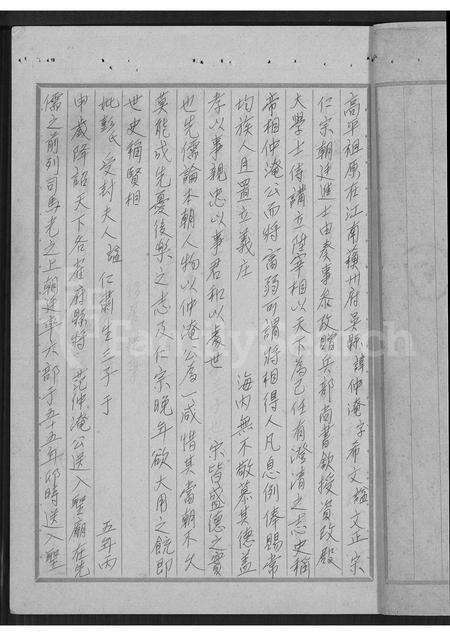 高平祖原在江南蘇州府吳縣諱仲淹字希文謚文正宗
仁宗朝進士由奏事參政贈兵部尚書欽授資政殿
大學士侍講立陞宰相以天下為己任有澄清之志史稱
帝相仲淹公而將富弼所謂將相得人凡息例俸賜常
均族人且置立義庄 海內無不敬慕其德蓋
孝以事親忠以事君和以處世 宗皆盛德之實
也先儒論本朝人物以仲淹公為一咸惜其當朝不久
莫能成先憂後樂之志及仁宗晚年欲大用之餓即
世史稱賢相
妣彭氏 受封夫人 謚仁肅生三子于 五年丙
申歲降詔天下各省府縣特 范仲淹公送入聖廟在先
儒之前列司馬光之上朝廷 六郡于五十五年 時送入聖
FamilySearch